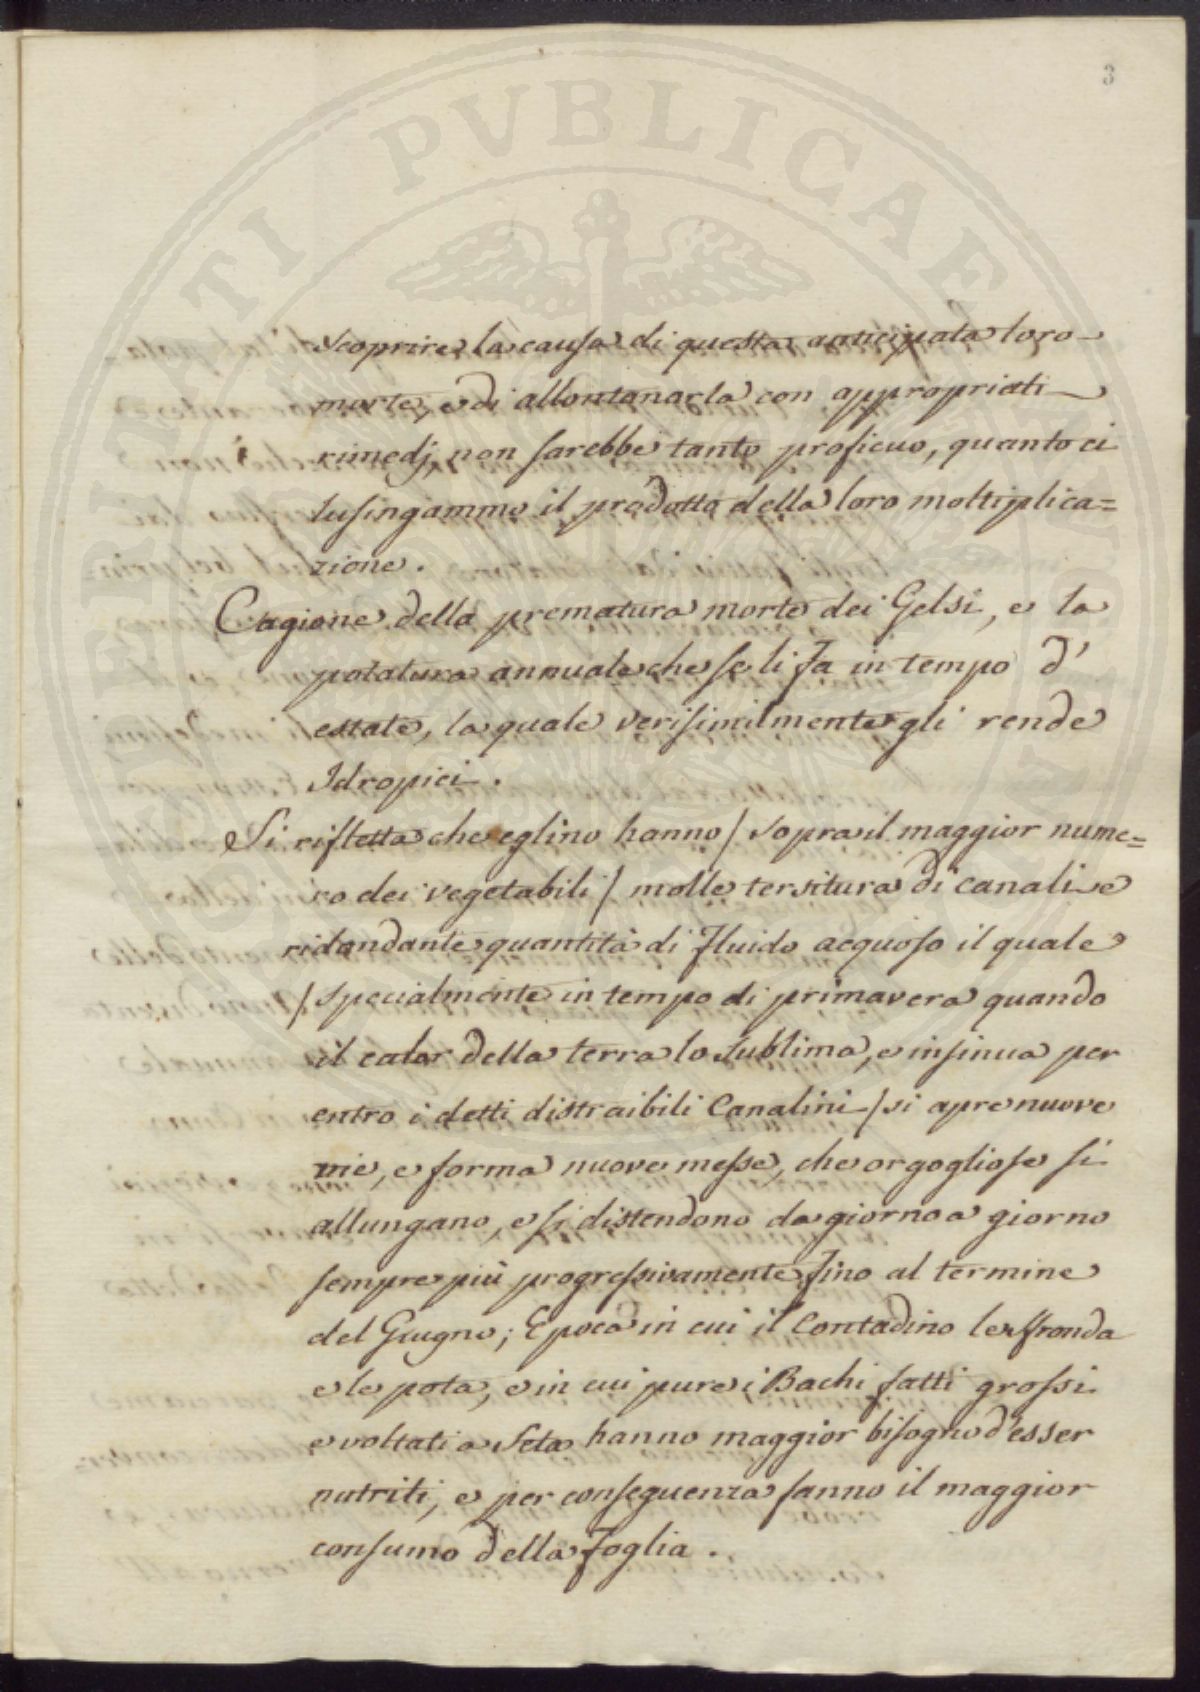 PROSPERITATI PVBLICAE
3
scoprire la causa di questa anticipata loro
morte, e di allontanarla con appropriati
rimedj, non sarebbe tanto proficuo, quanto ci
lusingammo il prodotto della loro moltiplica=
zione.
Cagione della prematura morte dei Gelsi, e la
potatura annuale che se li fa in tempo d'
estate, la quale verisimilmente gli rende
Idropici.
Si rifletta che eglino hanno / sopra il maggior nume=
ro dei vegetabili / molle tersitura di canali e
ridondante quantità di Fluido acquoso il quale
/ specialmente in tempo di primavera quando
il calor della terra lo sublima, e insinua per
entro i detti distraibili Canalini / si apre nuove
vie, e forma nuove messe, che orgogliose si
allungano, e si distendono da giorno a giorno
sempre più progressivamente fino al termine
del Giugno; Epoca in cui il Contadino le sfronda
e le pota, e in cui pure i Bachi fatti grossi
e voltati a Seta hanno maggior bisogno d'esser
nutriti, e per conseguenza fanno il maggior
consumo della Foglia.